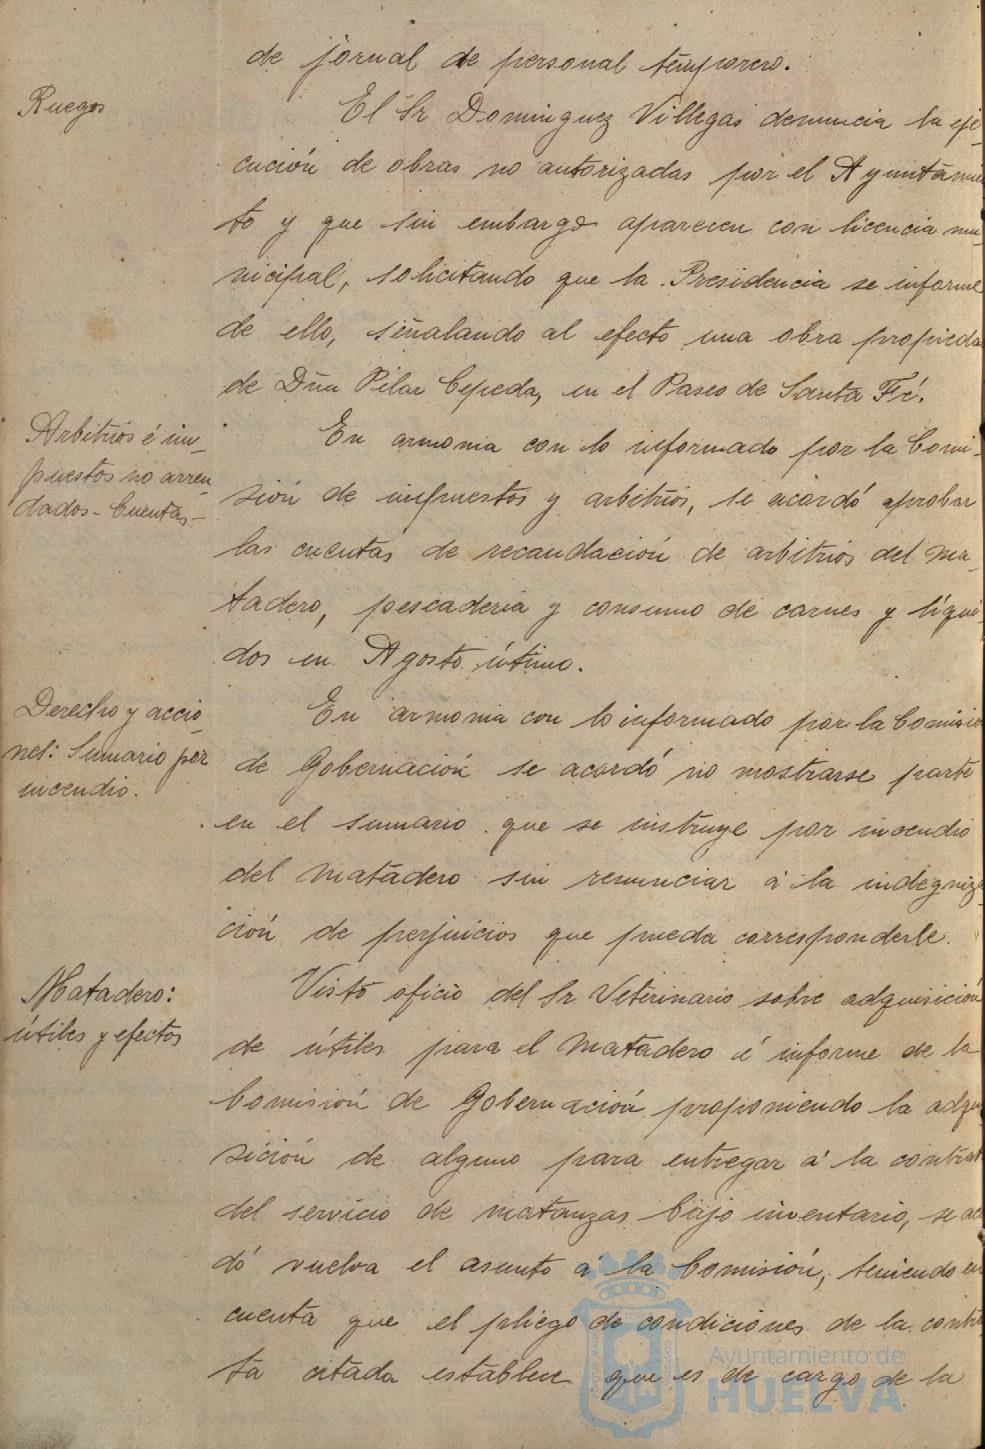 de jornal de personal temporero.
Ruegos
El Sr Dominguez Villegas denuncia la eje-
cución de obras no autorizadas por el Ayuntamien
to y que sin embargo aparecen con licencia mu-
nicipal, solicitando que la Presidencia se informe
de ello, señalando al efecto una obra propieda
de Dña Pilar Cepeda, en el Paseo de Santa Fé.
Arbitrios é im-
puestos no arren-
dados - Cuentas -
En armonia con lo informado por la Comi-
sión de impuestos y arbitrios, se acordó aprobar
las cuentas de recaudación de arbitrios del ma-
tadero, pescaderia y consumo de carnes y líqui-
dos en Agosto último.
Derecho y accio
nes: Sumario por
incendio.
En armonia con lo informado por la Comisio
de Gobernación se acordó no mostrarse parte
en el sumario que se instruye por incendio
del matadero sin renunciar á la indegniza
ción de perjuicios que pueda corresponderle.
Matadero:
útiles y efectos
Visto oficio del Sr Veterinario sobre adquisición
de útiles para el matadero é informe de la
Comisión de Gobernación proponiendo la adqui
sición de alguno para entregar á la contrat
del servicio de matanzas bajo inventario, se aco
dó vuelva el asunto á la Comisión, teniendo en
cuenta que el pliego de condiciones de la contra
ta citada establece que es de cargo de la
Ayuntamiento de
HUELVA